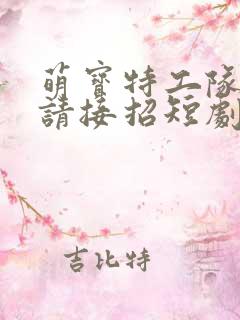 萌寶特工隊
請接招短劇
吉比特